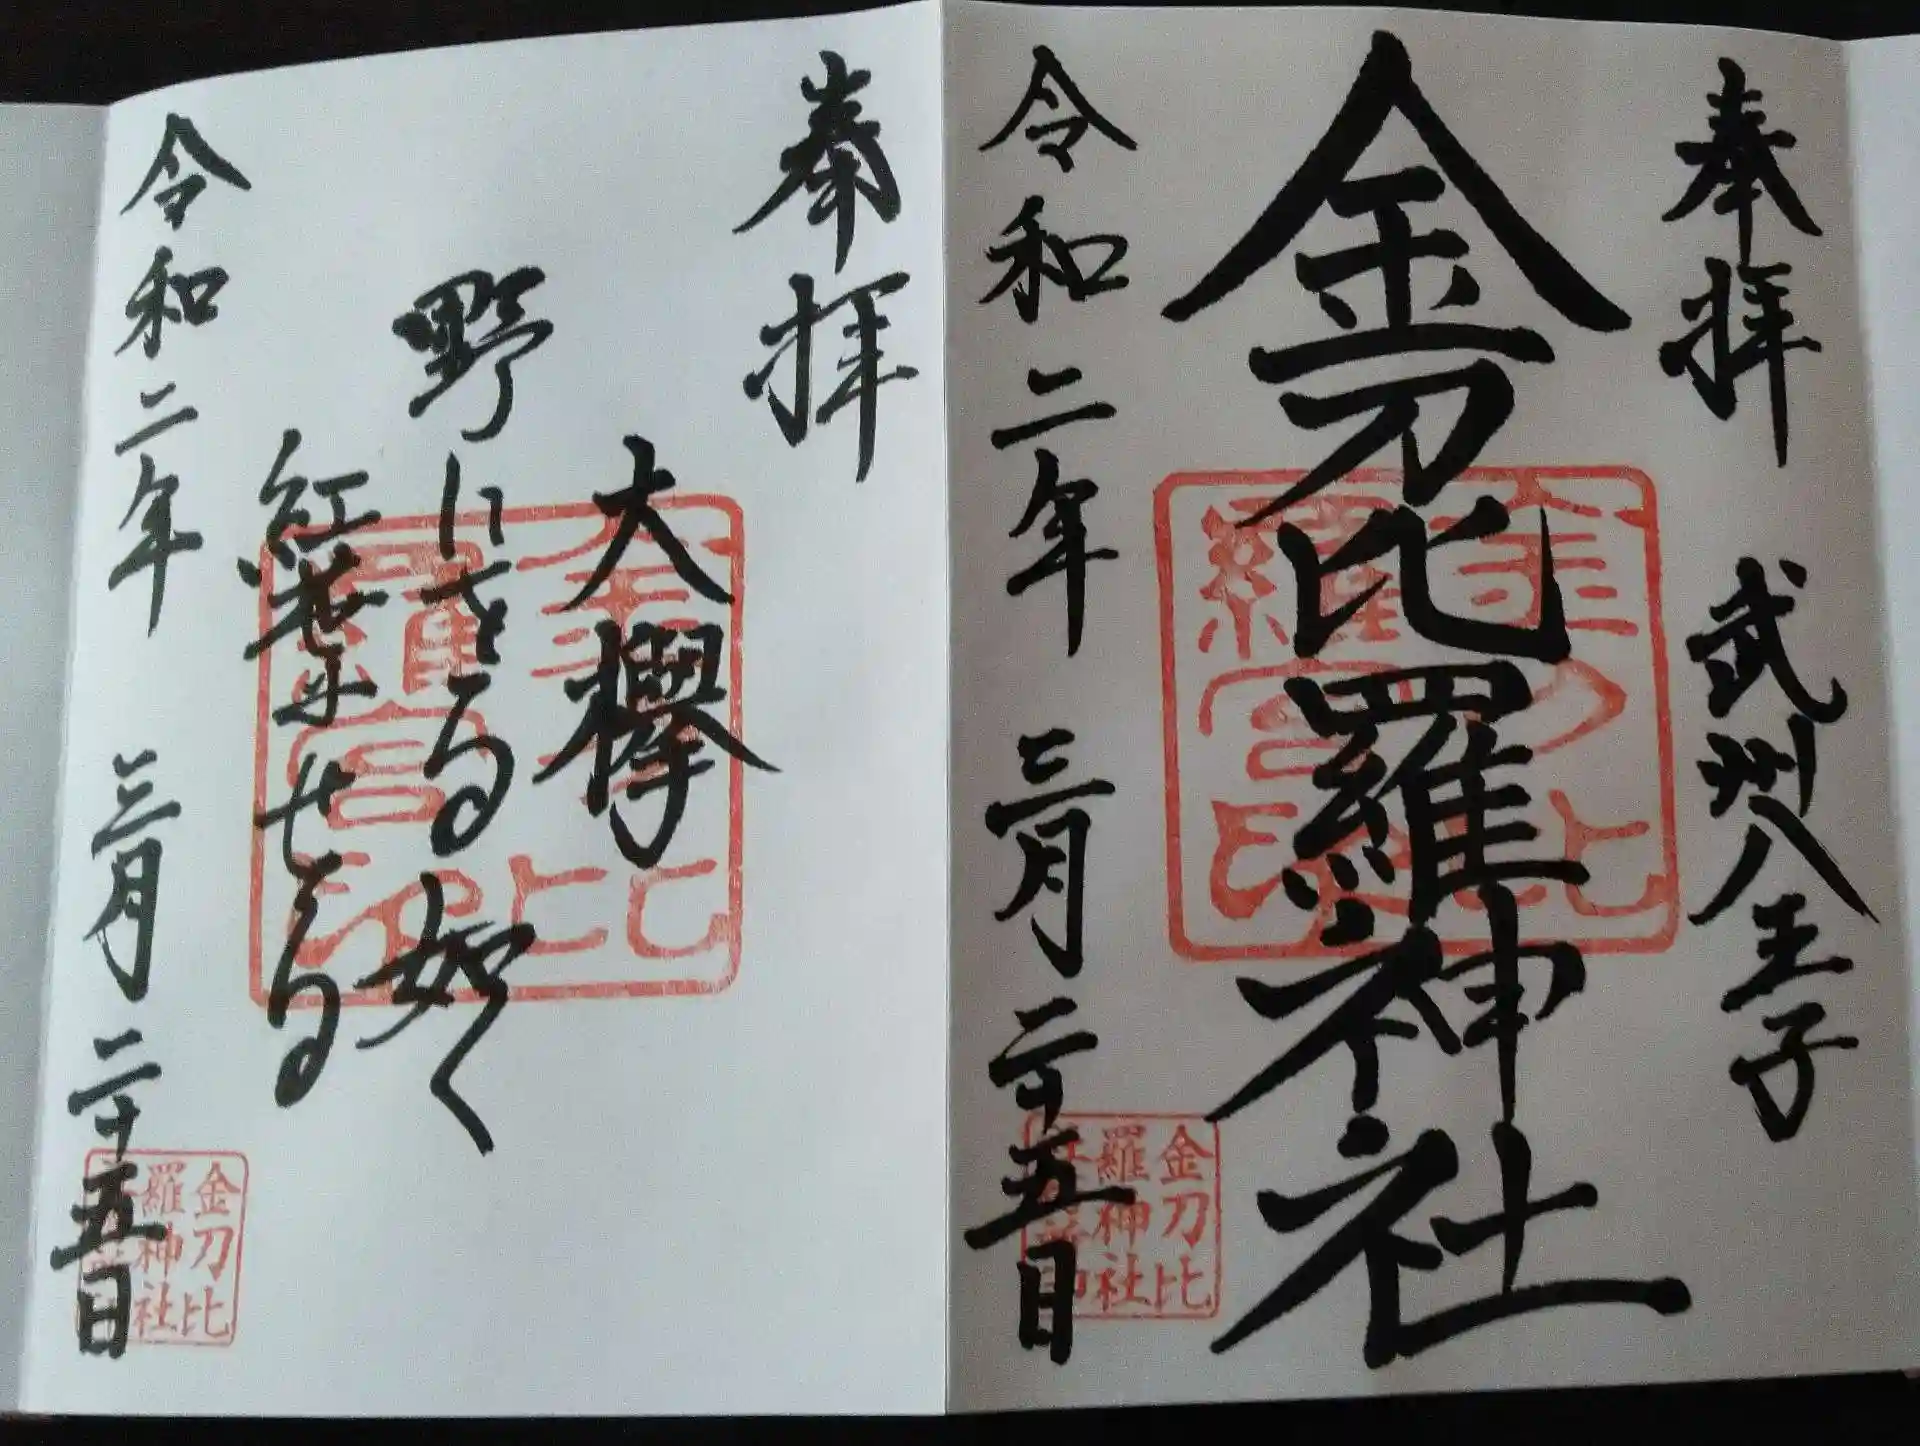 奉拝 武州八王子
金刀比羅神社
令和二年 三月二十五日
金刀比
羅宮印
金刀比
羅神社
奉拝
大欅
野にある如く
紅葉せる
令和二年 三月二十五日
金刀比
羅宮印
金刀比
羅神社